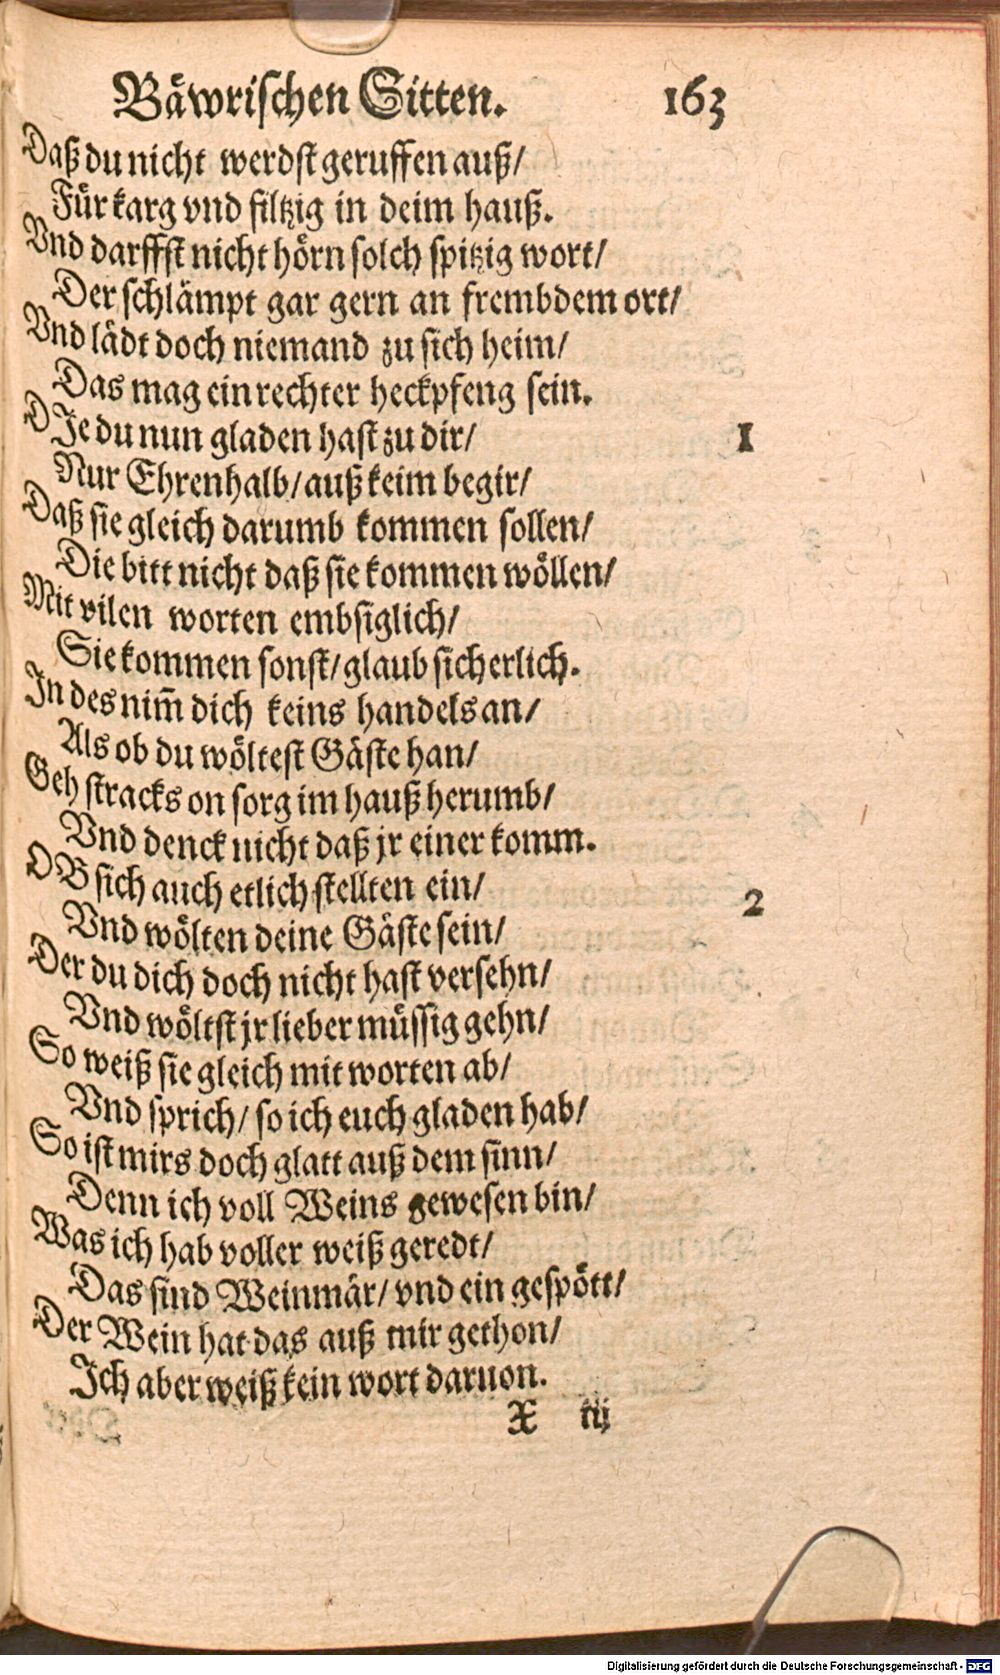 Bäwrischen Sitten. 163
Daß du nicht werdst geruffen auß/
Für karg vnd filtzig in deim hauß.
Vnd darffst nicht hörn solch spitzig wort/
Der schlämpt gar gern an frembdem ort/
Vnd lädt doch niemand zu sich heim/
Das mag ein rechter heckpfeng sein.
DJe du nun gladen hast zu dir/ 1
Nur Ehrenhalb/ auß keim begir/
Daß sie gleich darumb kommen sollen/
Die bitt nicht daß sie kommen wöllen/
Mit vilen worten embsiglich/
Sie kommen sonst/ glaub sicherlich.
In des nim̃ dich keins handels an/
Als ob du wöltest Gäste han/
Geh stracks on sorg im hauß herumb/
Vnd denck nicht daß jr einer komm.
OB sich auch etlich stellten ein/ 2
Vnd wölten deine Gäste sein/
Der du dich doch nicht hast versehn/
Vnd wöltst jr lieber müssig gehn/
So weiß sie gleich mit worten ab/
Vnd sprich/ so ich euch gladen hab/
So ist mirs doch glatt auß dem sinn/
Denn ich voll Weins gewesen bin/
Was ich hab voller weiß geredt/
Das sind Weinmär/ vnd ein gespött/
Der Wein hat das auß mir gethon/
Ich aber weiß kein wort daruon.
X iij
Digitalisierung gefördert durch die Deutsche Forschungsgemeinschaft - DFG